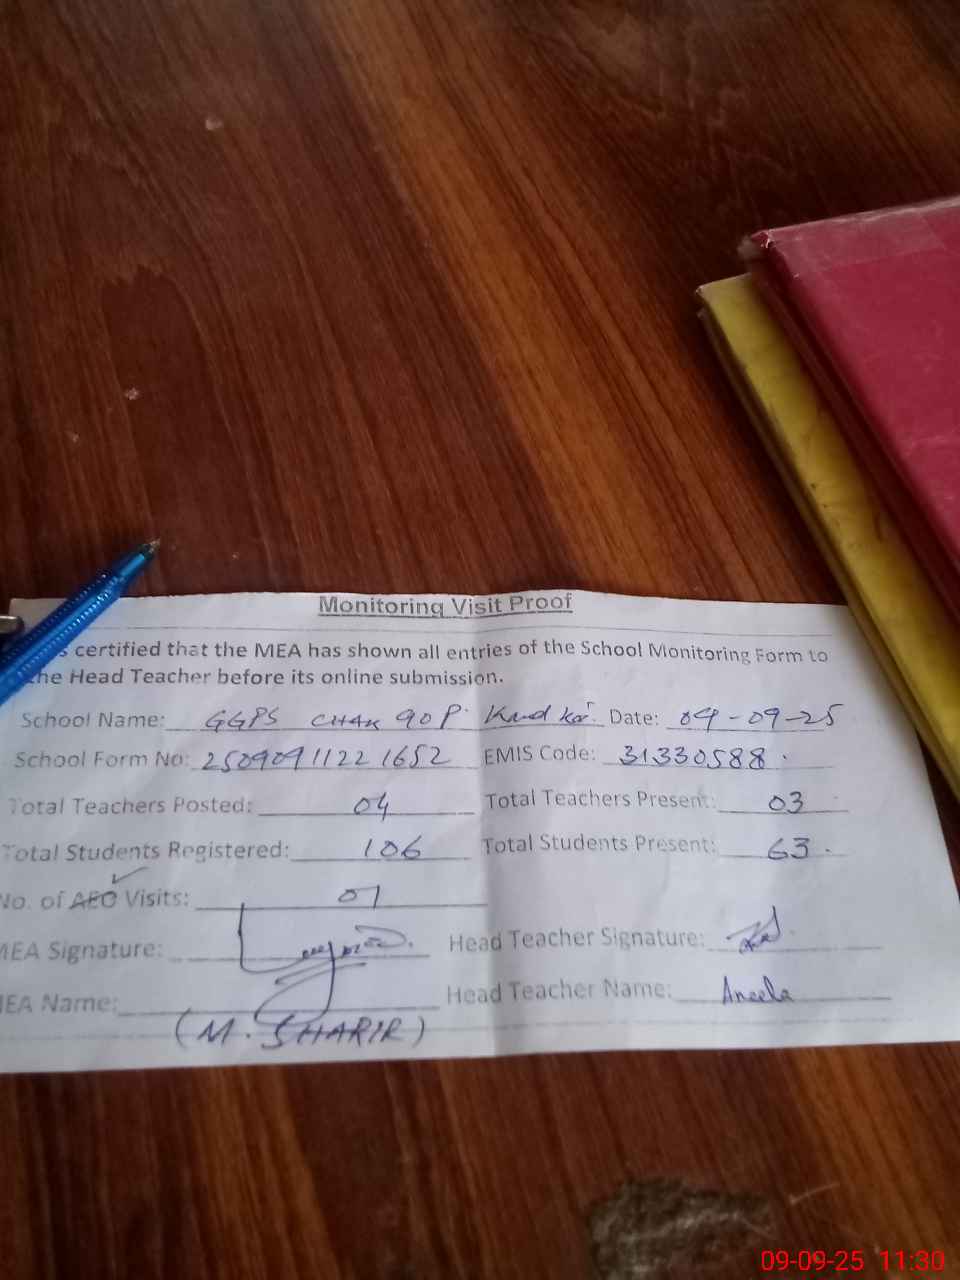 Monitoring Visit Proof
certified that the MEA has shown all entries of the School Monitoring Form to
the Head Teacher before its online submission.
School Name: GGPS CHAK 90P. Date: 09-09-25
School Form No: 2509091122 1652 EMIS Code: 31330588.
Total Teachers Posted: 04 Total Teachers Present: 03
Total Students Registered: 106 Total Students Present: 63.
No. of AEO Visits: 01
MEA Signature: Head Teacher Signature:
MEA Name: Head Teacher Name: Aneela
(M. SHARIR)
09-09-25 11:30